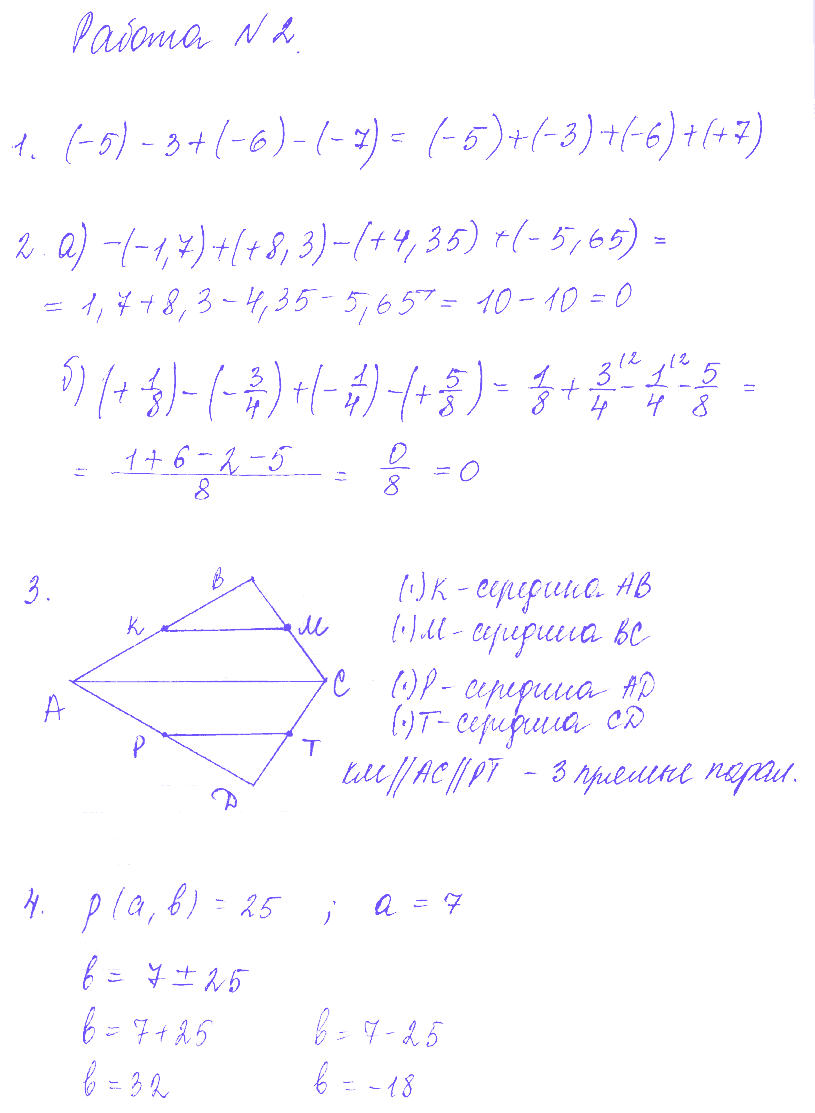 Работа N 2.
1. (-5) - 3 + (-6) - (-7) = (-5) + (-3) + (-6) + (+7)
2. а) -(-1,7) + (+8,3) - (+4,35) + (-5,65) =
= 1,7 + 8,3 - 4,35 - 5,65 = 10 - 10 = 0
б) (+ 1/8) - (- 3/4) + (- 1/4) - (+ 5/8) = 1/8 + 3/4 |2 - 1/4 |2 - 5/8 =
= (1 + 6 - 2 - 5)/8 = 0/8 = 0
3.
B
K
M
A
C
P
T
D
(·) K - середина AB
(·) M - середина BC
(·) P - середина AD
(·) T - середина CD
KM || AC || PT - 3 прямые парал.
4. p(a, b) = 25 ; a = 7
b = 7 ± 25
b = 7 + 25 b = 7 - 25
b = 32 b = -18